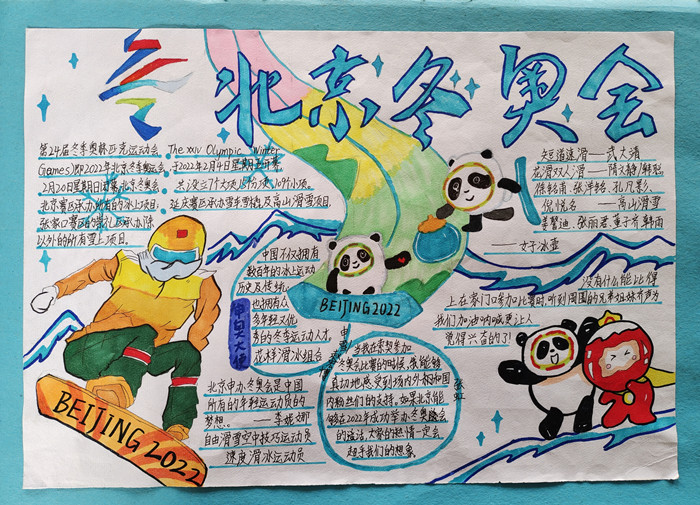 北京冬奥会
第24届冬季奥林匹克运动会，The xxiv Olympic Winter
Games)即2022年北京冬季奥运会，于2022年2月4日星期五开幕
2月20日星期日闭幕，北京冬奥会
共设立7个大项，15个分项，109个小项。
北京赛区承办所有的冰上项目，
延庆赛区承办雪车雪橇及高山滑雪项目
张家口赛区的崇礼区承办除
以外的所有雪上项目。
短道速滑——武大靖
花滑双人滑——隋文静/韩聪
倪悦名——高山滑雪
——女子冰壶
中国不仅拥有
数百年的冰上运动
历史及传统，
也拥有众
多年轻又优
秀的冬季运动人才，
花样滑冰组合
申白大使
BEIJING 2022
没有什么能比得
上在家门口参加比赛时，听到周围的兄弟姐妹齐声为
我们加油呐喊更让人
觉得兴奋的了！
当我在索契参加
冬奥会比赛的时候，我能够
真切地感受到场内外和祖国
内粉丝们的支持，如果北京能
够在2022年成功举办冬奥盛会
的话，大家的热情一定会
超乎我们的想象。
张虹
北京申办冬奥会是中国
所有的年轻运动员的
梦想。——李妮娜
自由滑雪空中技巧运动员
速度滑冰运动员
BEIJING 2022